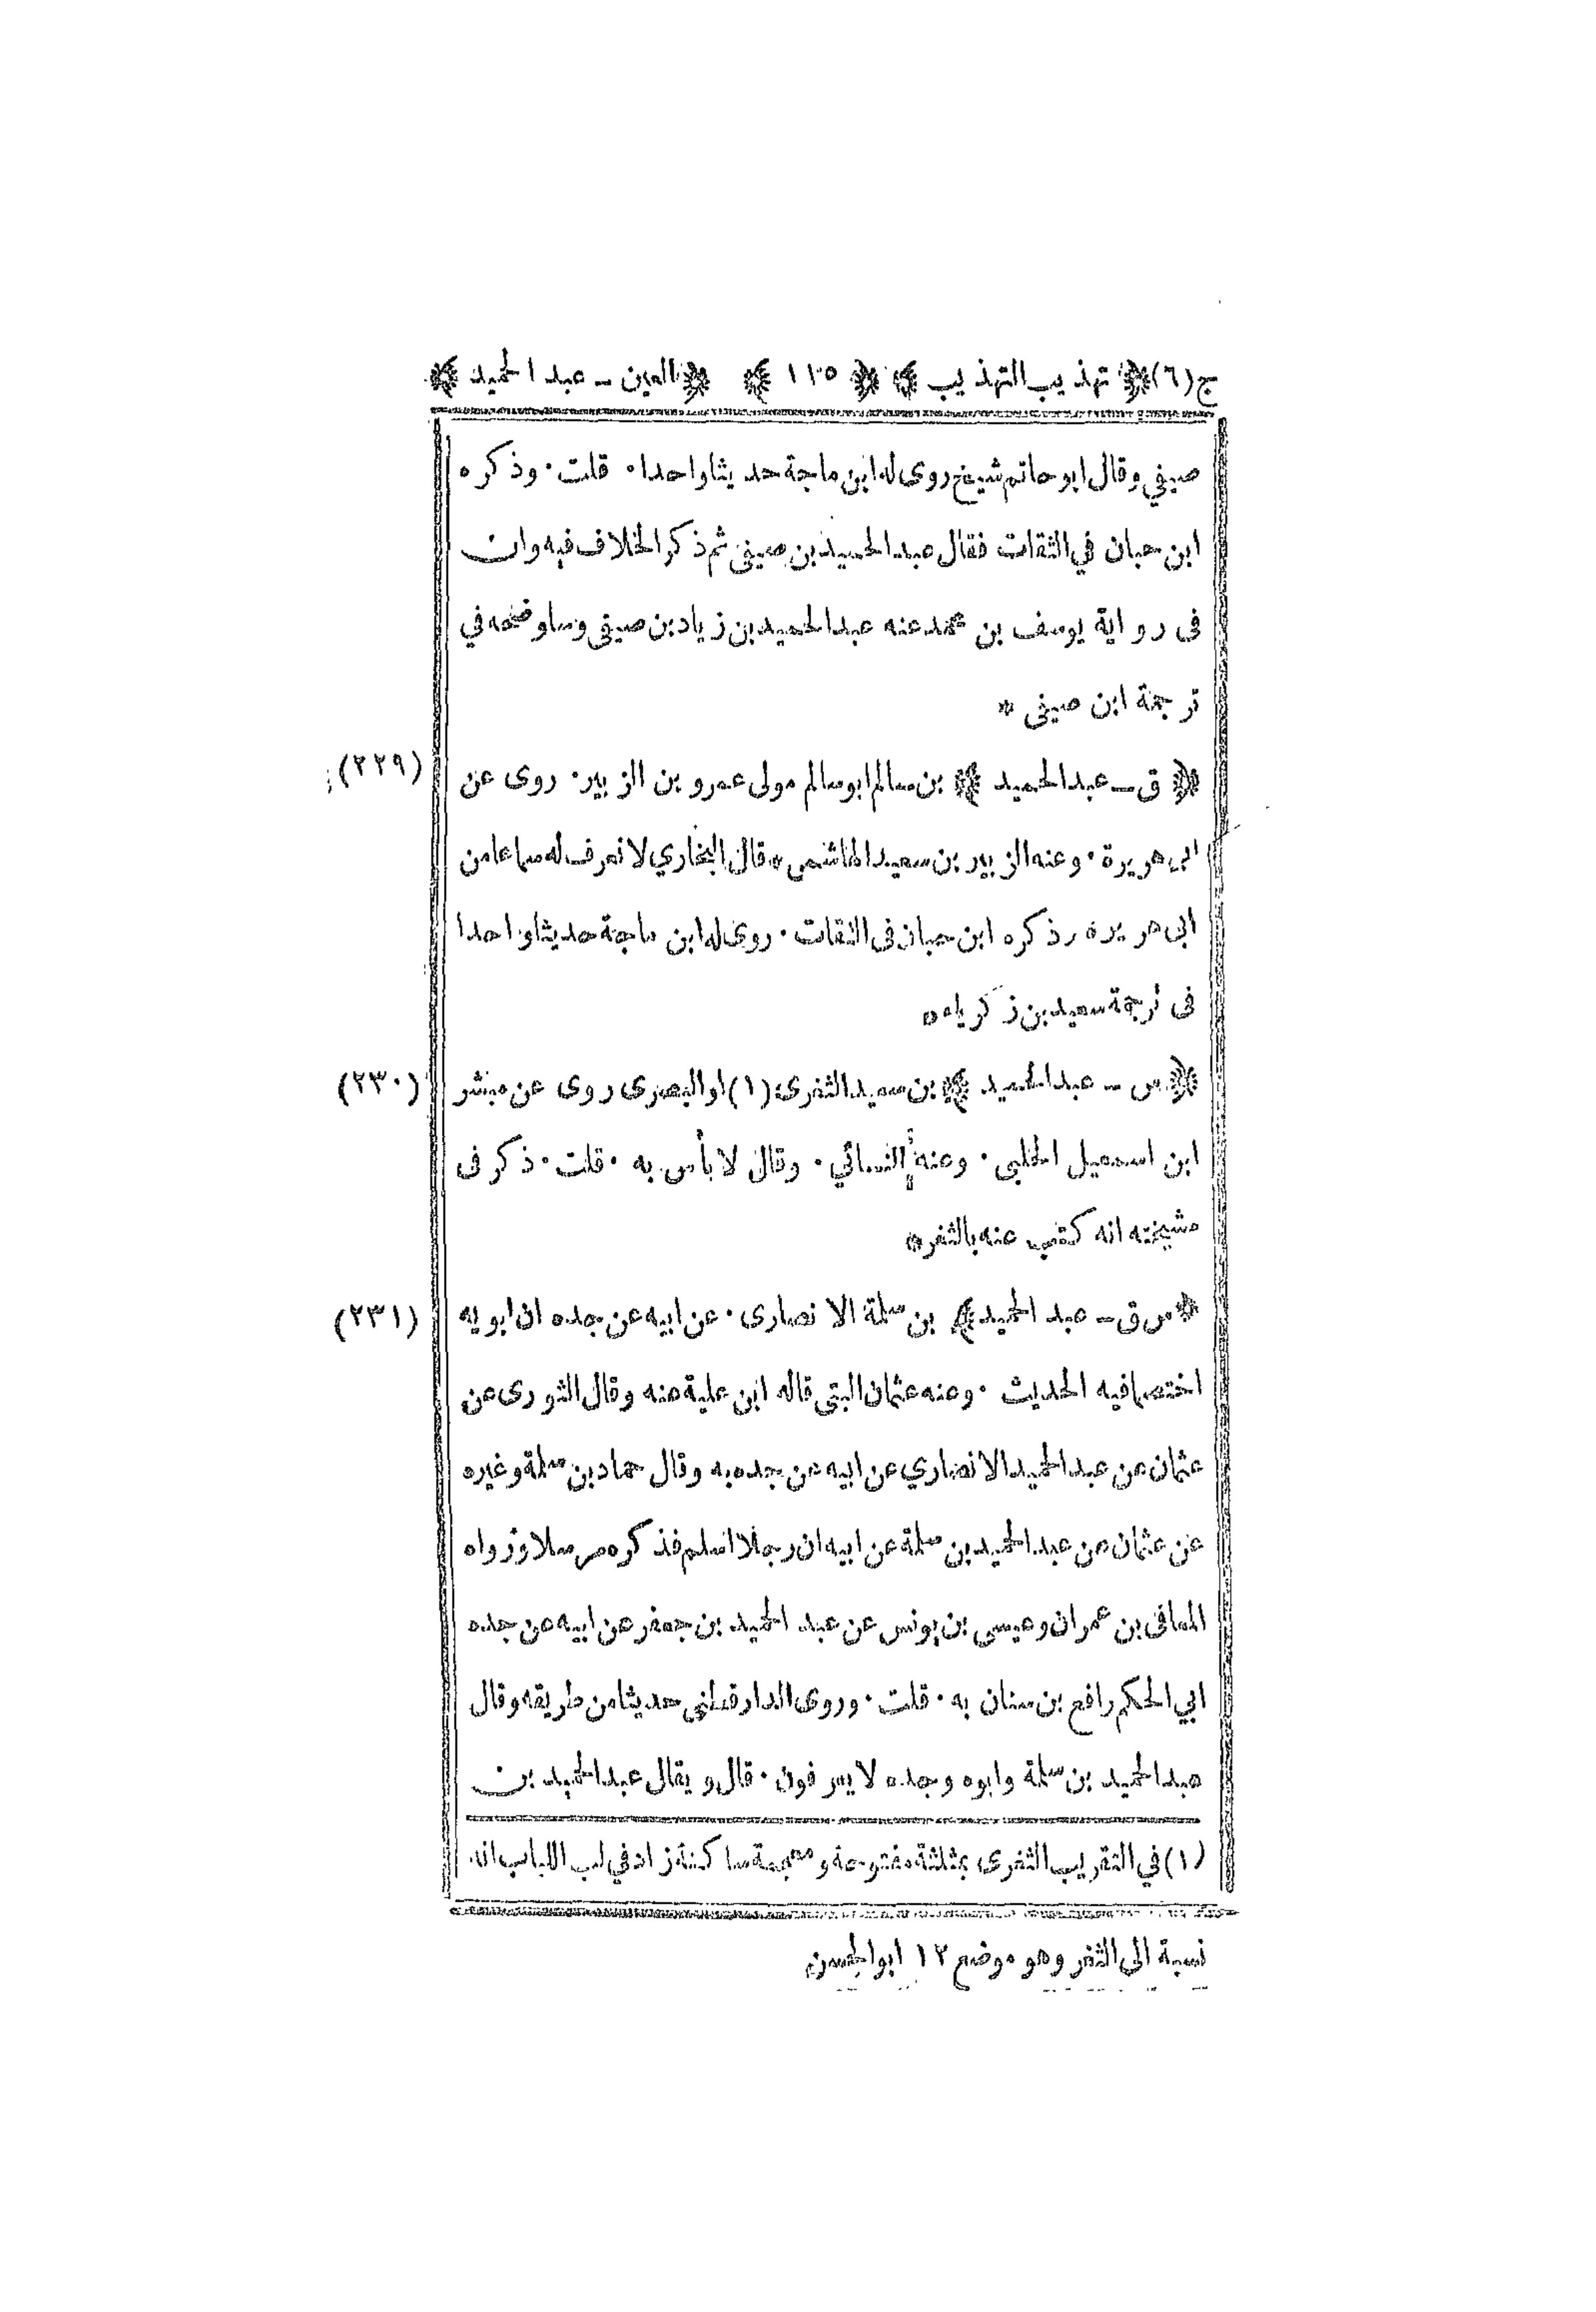 ج(٦) ﴿ تهذيب التهذيب ﴾ ﴿ ١١٥ ﴾ ﴿ العين ـ عبد الحميد ﴾
صيفي وقال ابو حاتم شيخ روى له ابن ماجة حديثا واحدا ۰ قلت ۰ وذكره
ابن حبان في الثقات فقال عبد الحميد بن صيفى ثم ذكر الخلاف فيه وان
فى رواية يوسف بن محمد عنه عبد الحميد بن زياد بن صيفى وساوضحه في
ترجمة ابن صيفى *
﴿ ق ـ عبد الحميد ﴾ بن سالم ابو سالم مولى عمرو بن الزبير ۰ روى عن (٢٢٩)
ابي هريرة ۰ وعنه الزبير بن سعيد الهاشمى * قال البخاري لا نعرف له سماعا من
ابى هريرة وذكره ابن حبان فى الثقات ۰ روى له ابن ماجة حديثا واحدا
فى ترجمة سعيد بن زكرياء *
﴿ س ـ عبد الحميد ﴾ بن سعيد الثغرى (١) او البصرى روى عن مبشر (٢٣٠)
ابن اسمعيل الحلبى ۰ وعنه النسائي ۰ وقال لا بأس به ۰ قلت ۰ ذكر فى
مشيخته انه كتب عنه بالثغر *
﴿ س ق ـ عبد الحميد ﴾ بن سلمة الانصارى ۰ عن ابيه عن جده ان ابويه (٢٣١)
اختصما فيه الحديث ۰ وعنه عثمان البتى قاله ابن علية عنه وقال الثورى عن
عثمان عن عبد الحميد الانصاري عن ابيه عن جده به وقال حماد بن سلمة وغيره
عن عثمان عن عبد الحميد بن سلمة عن ابيه ان رجلا اسلم فذكره مرسلا ورواه
المعافى بن عمران وعيسى بن يونس عن عبد الحميد بن جعفر عن ابيه عن جده
ابي الحكم رافع بن سنان به ۰ قلت ۰ وروى الدارقطنى حديثا من طريقه وقال
عبد الحميد بن سلمة وابوه وجده لا يعرفون ۰ قال ويقال عبد الحميد بن
(١) في التقريب الثغرى بمثلثة مفتوحة ومعجمة ساكنة زاد في لب اللباب انه
نسبة الى الثغر وهو موضع ١٢ ابو الحسن